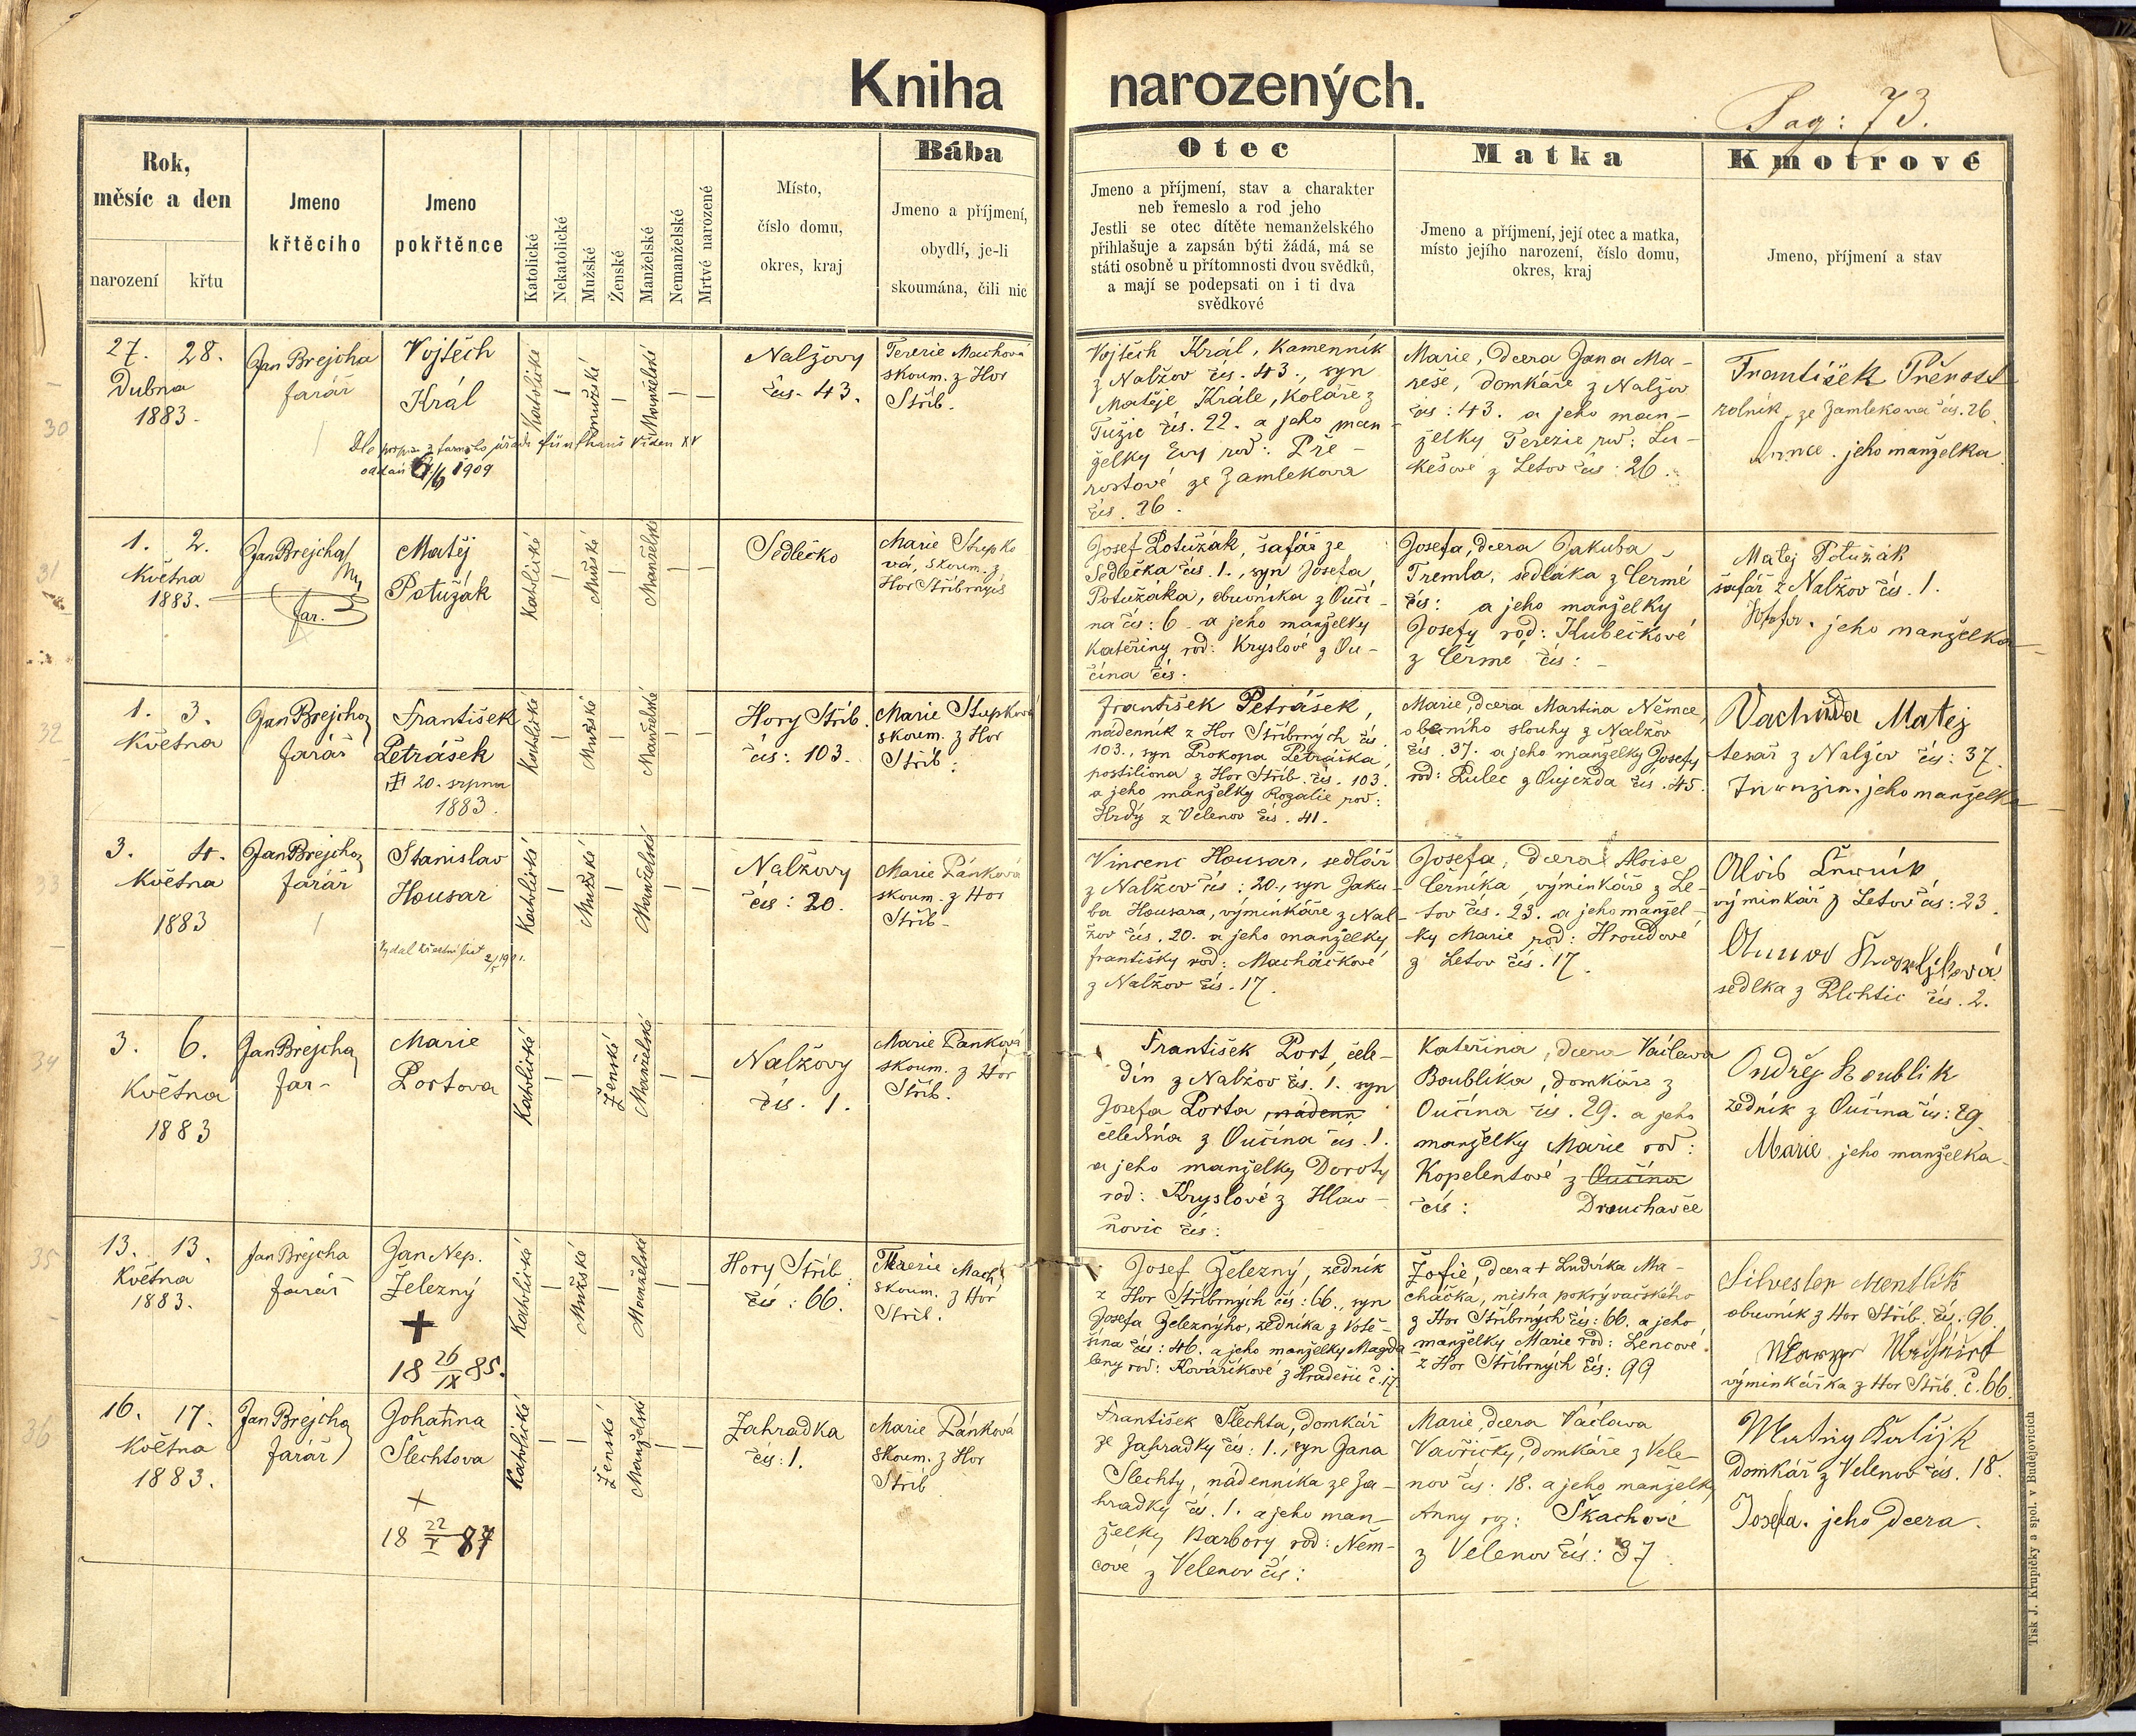 Kniha narozených.
Pag: 73.
Rok,
měsíc a den
narození
křtu
Jmeno
křtěcího
Jmeno
pokřtěnce
Katolické
Nekatolické
Mužské
Ženské
Manželské
Nemanželské
Mrtvé narozené
Místo,
číslo domu,
okres, kraj
Bába
Jmeno a příjmení,
obydlí, je-li
skoumána, čili nic
Otec
Jmeno a příjmení, stav a charakter
neb řemeslo a rod jeho
Jestli se otec dítěte nemanželského
přihlašuje a zapsán býti žádá, má se
státi osobně u přítomnosti dvou svědků,
a mají se podepsati on i ti dva
svědkové
Matka
Jmeno a příjmení, její otec a matka,
místo jejího narození, číslo domu,
okres, kraj
Kmotrové
Jmeno, příjmení a stav
30
27. 28.
Dubna
1883.
Jan Brejcha
farář
Vojtěch
Král
Katolické
Mužské
Manželské
Nalžovy
čís. 43.
Terezie Machová
skoum. z Hor
Stříb.
Vojtěch Král, Kamenník
z Nalžov čís. 43., syn
Matěje Krále, Koláře z
Tužic čís. 22. a jeho man-
želky Evy roď: Pře-
rostové ze Zamlekova
čís. 26.
Marie, dcera Jana Ma-
reše, domkáře z Nalžov
čís: 43. a jeho man-
želky Terezie roď: Lu-
kešové z Letov čís: 26.
František Přerost
rolník ze Zamlekova čís. 26.
jeho manželka
úřadu Fünfhaus Vídeň XV
oddán 1909
31
1. 2.
Května
1883.
Jan Brejcha
far.
Matěj
Potužák
Katolické
Mužské
Manželské
Sedlečko
Marie Stupko-
vá, skoum. z
Hor Stříbrných
Josef Potužák, šafář ze
Sedlečka čís. 1., syn Josefa
Potužáka, obuvníka z Ouči-
na čís: 6 a jeho manželky
Kateřiny roď: Kryslové z Ou-
čína čís.
Josefa, dcera Jakuba
Tremla, sedláka z Čermé
čís: a jeho manželky
Josefy roď: Kubečkové
z Čermé čís: -
Matěj Potužák
šafář z Nalžov čís. 1.
jeho manželka
32
1. 3.
Května
Jan Brejcha
farář
František
Petrášek
20. srpna
1883.
Katolické
Mužské
Manželské
Hory Stříb.
čís: 103.
Marie Stupková
skoum. z Hor
Stříb:
František Petrášek,
nádenník z Hor Stříbrných čís
103., syn Prokopa Petráška,
postiliona z Hor Stříb. čís. 103.
a jeho manželky Rozalie roď:
Hrdý z Velenov čís. 41.
Marie, dcera Martina Němce,
obecního slouhy z Nalžov
čís. 37. a jeho manželky Josefy
roď: Pulec z Oujezda čís. 45.
Vachuda Matěj
tesař z Nalžov čís: 37.
jeho manželka
33
3. 4.
Května
1883
Jan Brejcha
farář
Stanislav
Housar
Vydal křestní list
Katolické
Mužské
Manželské
Nalžovy
čís: 20.
Marie Pánková
skoum. z Hor
Stříb-
Vincenc Housar, sedlář
z Nalžov čís: 20., syn Jaku-
ba Housara, výminkáře z Nal-
žov čís. 20. a jeho manželky
Františky roď: Macháčkové
z Nalžov čís. 17.
Josefa, dcera Aloise
Černíka, výminkáře z Le-
tov čís. 23. a jeho manžel-
ky Marie roď: Hroudové
z Letov čís. 17.
Alois Černík,
výminkář z Letov čís: 23.
sedlka z Plchtic čís. 2.
34
3. 6.
Května
1883
Jan Brejcha
far-
Marie
Portova
Katolické
Ženské
Manželské
Nalžovy
čís. 1.
Marie Pánková
skoum. z Hor
Stříb.
František Port, čele-
dín z Nalžov čís. 1. syn
Josefa Porta nádenn
čeledína z Oučína čís. 1.
a jeho manželky Doroty
roď: Kryslové z Hlav-
ňovic čís:
Kateřina, dcera Václava
Boublíka, domkáře z
Oučína čís. 29. a jeho
manželky Marie roď:
Kopelentové z Oučína
čís: Drouhavče
Ondřej Boublik
zedník z Oučína čís: 29.
Marie jeho manželka
35
13. 13.
Května
1883.
Jan Brejcha
farář
Jan Nep.
Železný
+
18 26/IX 85.
Katolické
Mužské
Manželské
Hory Stříb.
čís: 66.
Terezie Mach
skoum. z Hor
Stříb.
Josef Železný, zedník
z Hor Stříbrných čís: 66., syn
Josefa Železnýho, zedníka z Votě-
šína čís: 46. a jeho manželky Magda
leny roď: Kováříkové z Hradešic č. 17.
Žofie, dcera + Ludvíka Ma-
cháčka, mistra pokrývačského
z Hor Stříbrných čís: 66. a jeho
manželky Marie roď: Lencové
z Hor Stříbrných čís: 99
Silvester Mentlik
obuvník z Hor Stříb. čís. 96.
výminkářka z Hor Stříb. č. 66.
36
16. 17.
Května
1883.
Jan Brejcha
farář
Johanna
Šlechtova
+
18 22/I 87
Katolické
Ženské
Manželské
Zahradka
čís: 1.
Marie Pánková
skoum. z Hor
Stříb
František Šlechta, domkář
ze Zahradky čís: 1., syn Jana
Šlechty, nádenníka ze Za-
hradky čís. 1. a jeho man-
želky Barbory roď: Něm-
cové z Velenov čís:
Marie, dcera Václava
Vavřičky, domkáře z Vele-
nov čís: 18. a jeho manželky
Anny roz: Škachové
z Velenov čís: 37.
domkář z Velenov čís. 18.
Josefa. jeho dcera.
Tisk J. Krupičky a spol. v Budějovicích